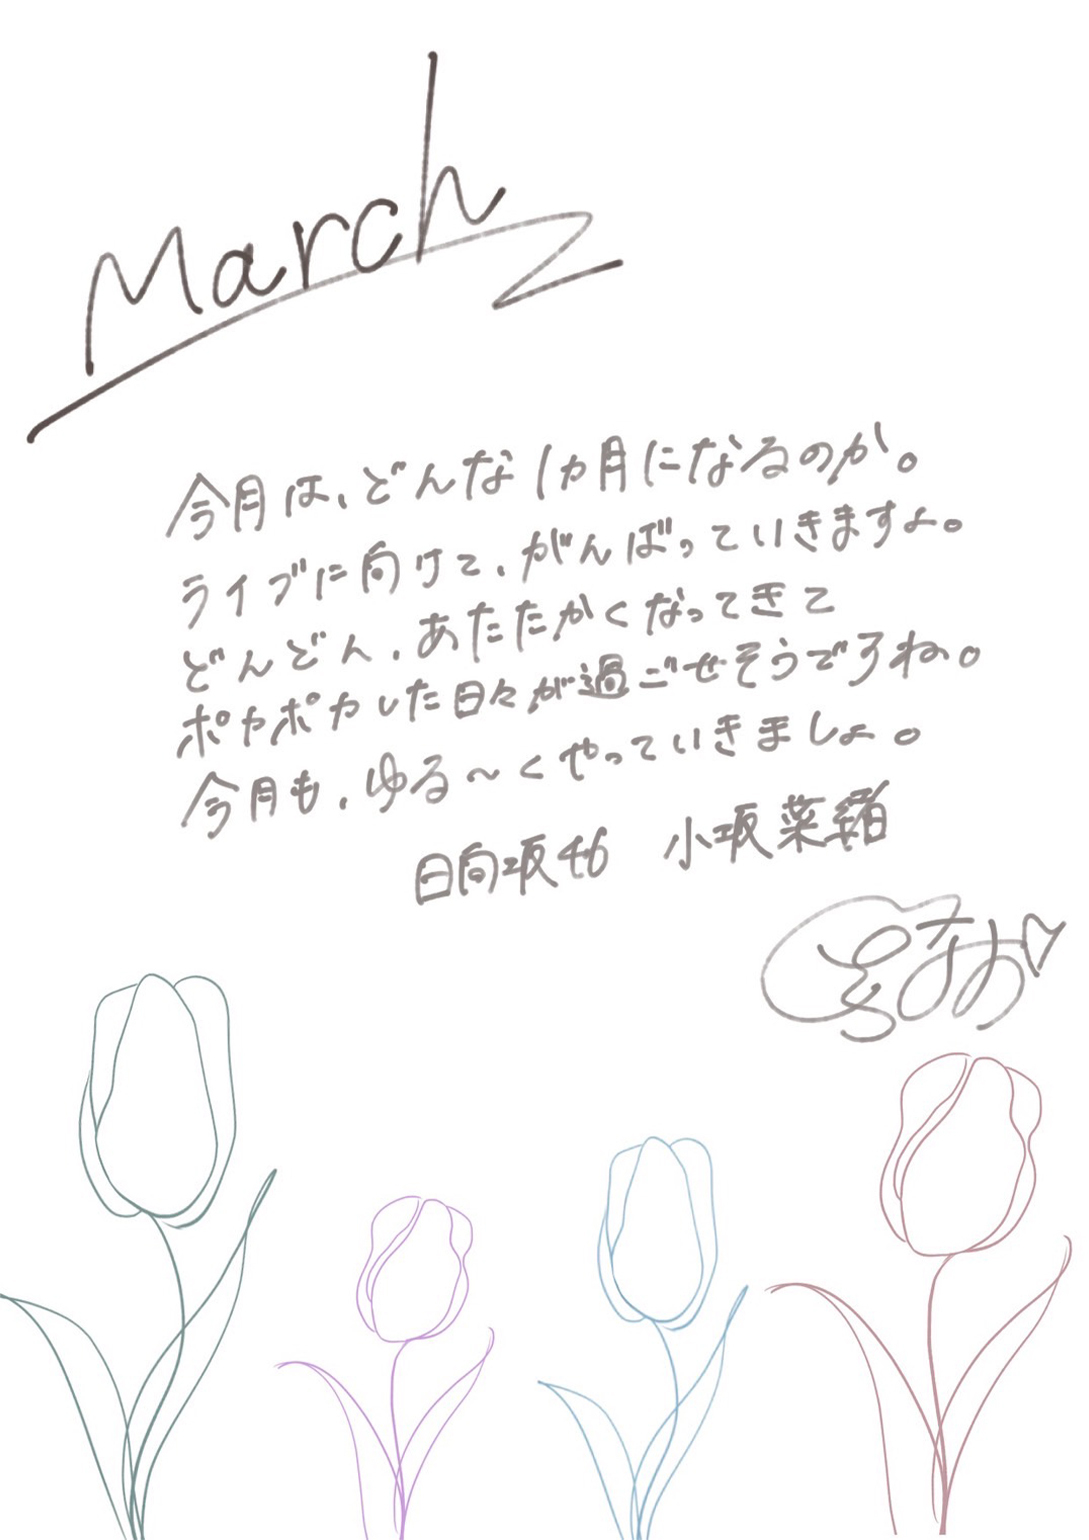 March
今月は、どんな1ヵ月になるのか。
ライブに向けて、がんばっていきますよ。
どんどん、あたたかくなってきて
ポカポカした日々が過ごせそうですね。
今月も、ゆる〜くやっていきましょ。
日向坂46 小坂菜緒